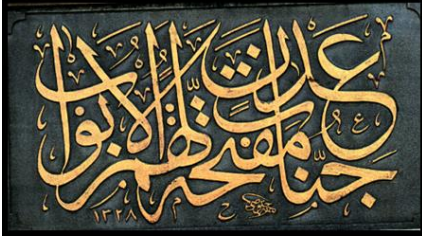 جنات عدن مفتحة لهم الأبواب
١٣٢٨